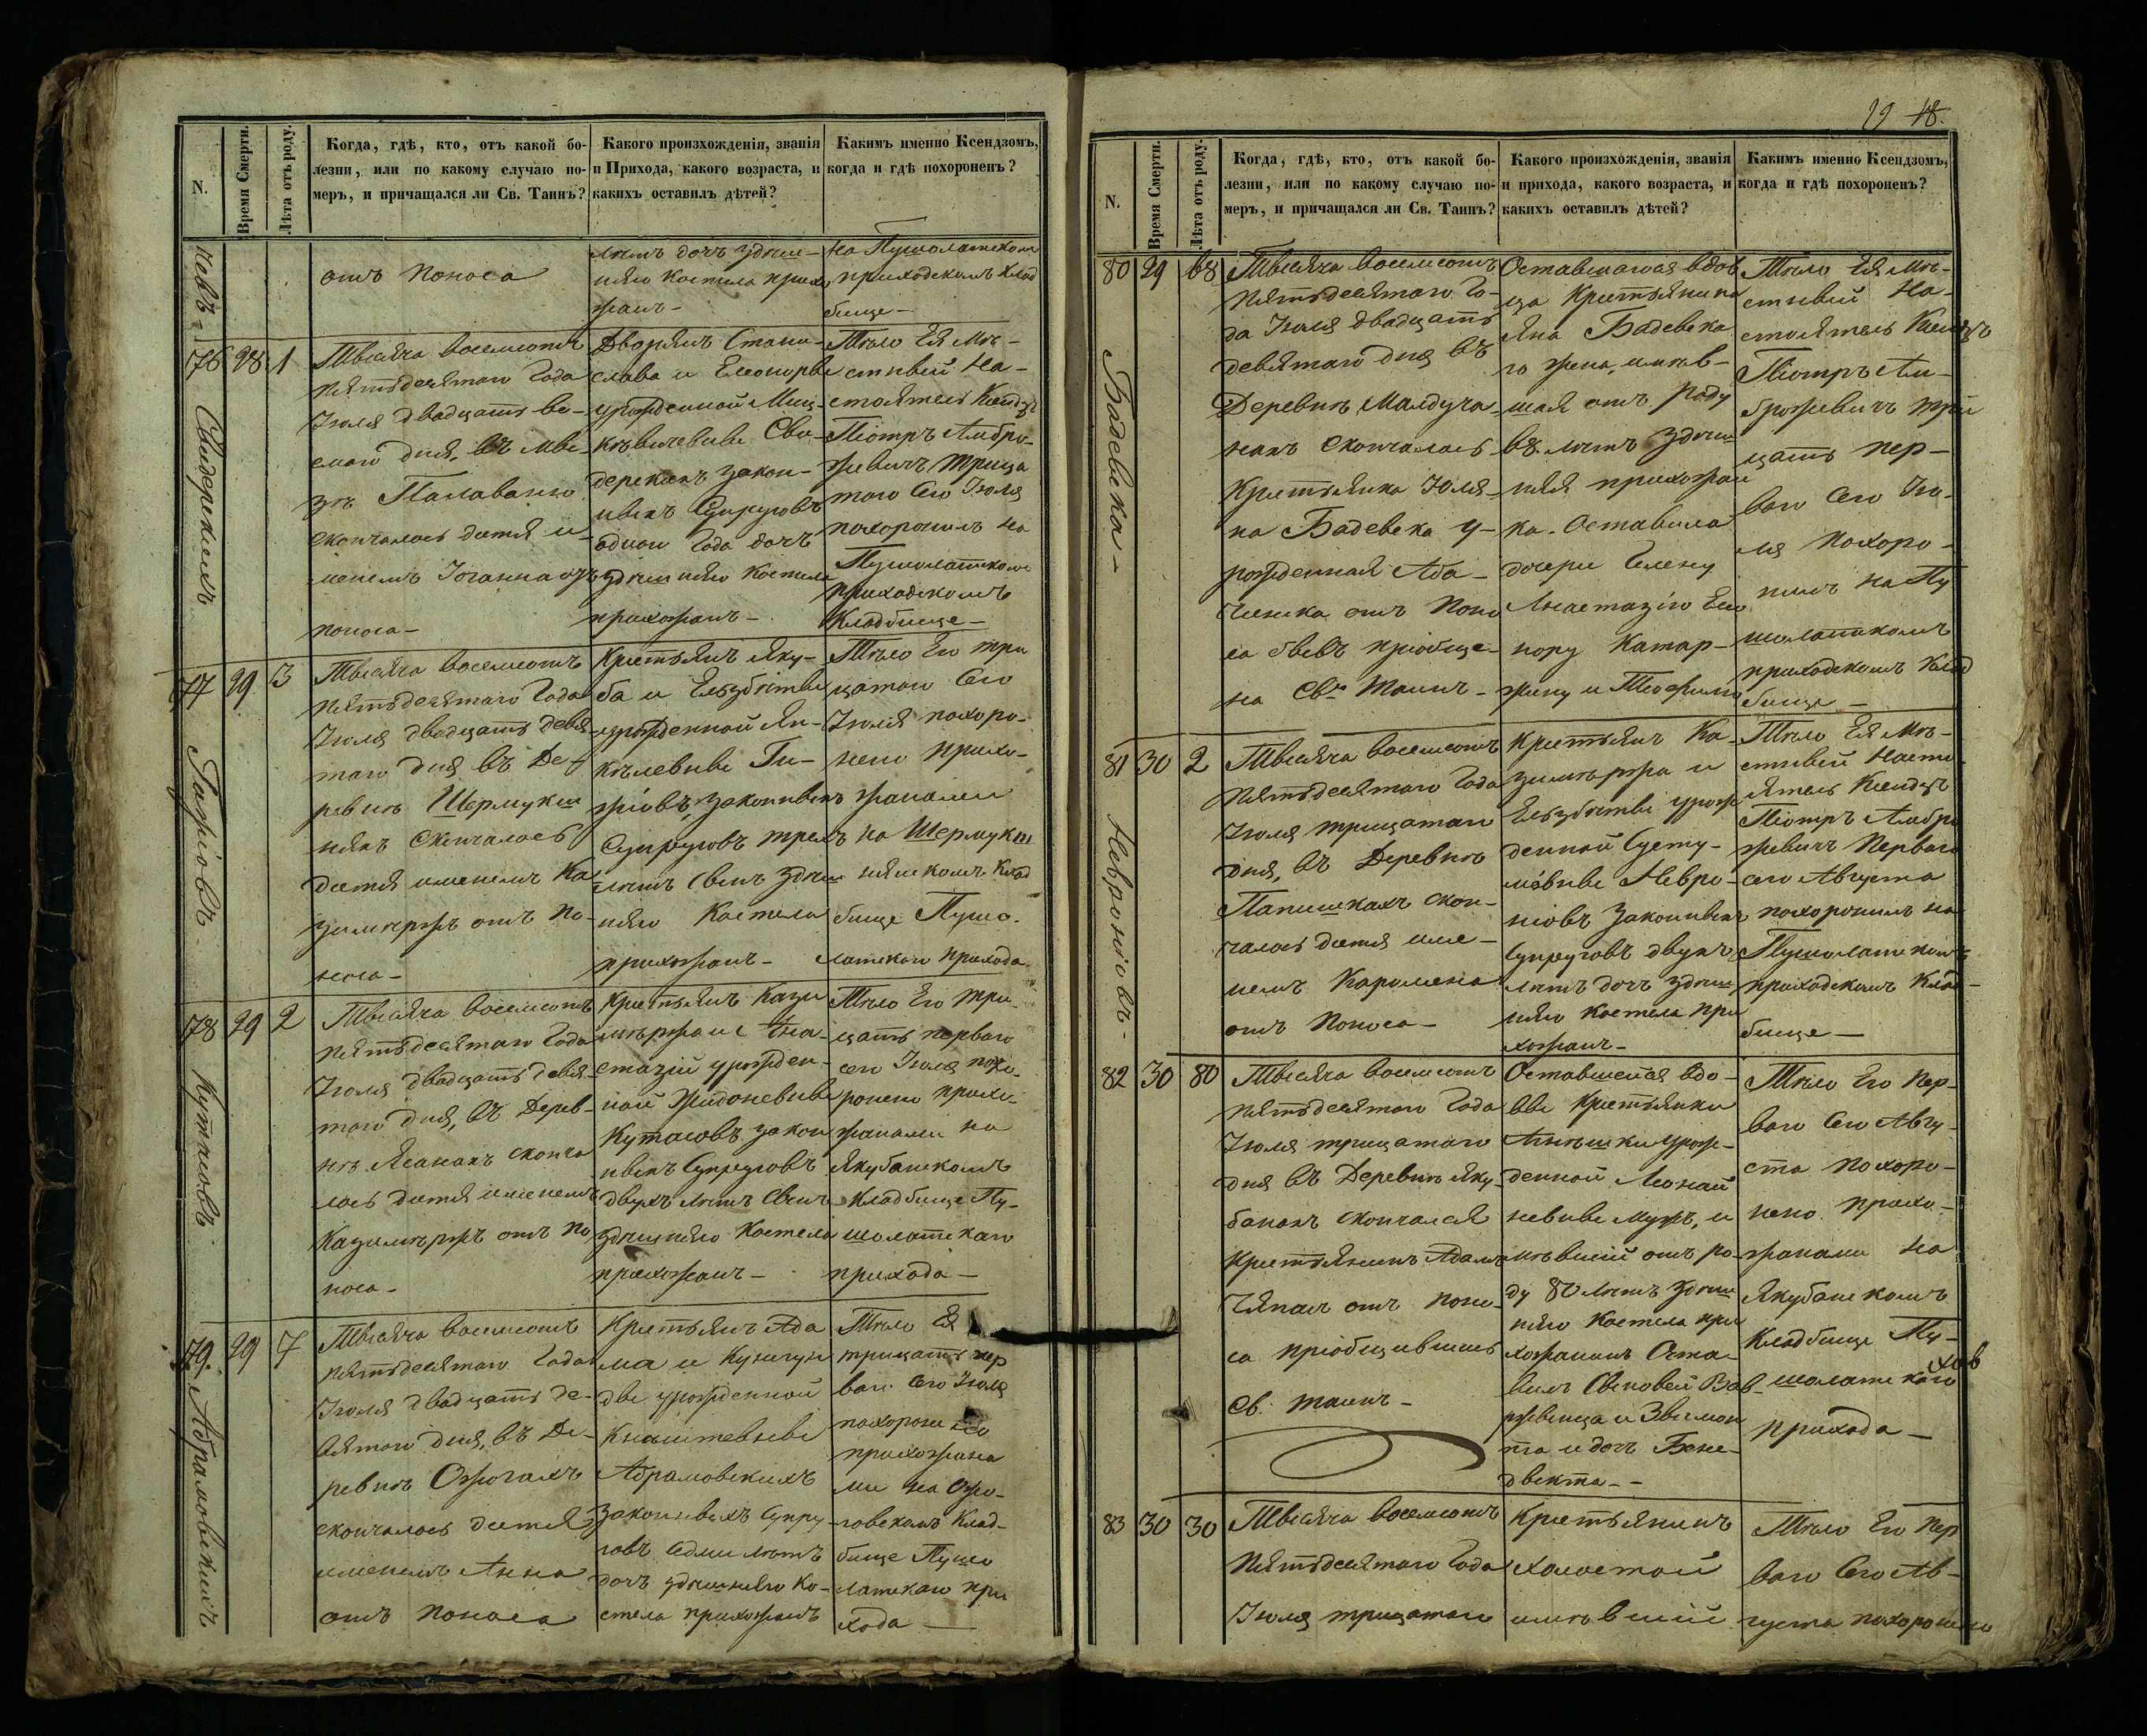 N.
Время Смерти.
Лѣта отъ роду.
Когда, гдѣ, кто, отъ какой бо-
лезни, или по какому случаю по-
меръ, и причащался ли Св. Таинъ?
Какого произхожденія, званія
и Прихода, какого возраста, и
какихъ оставилъ дѣтей?
Какимъ именно Ксендзомъ,
когда и гдѣ похороненъ?
отъ поноса
лѣтъ дочь здѣш-
няго Костела прихо
жанъ-
на Пушолатскомъ
приходскомъ Клад
бище-
76 28 1
Свидерскихъ
Тысяча восемсотъ
пятьдесятаго Года
Іюля двадцать во-
смаго дня, въ Мы-
зѣ Палавано
скончалось дитя и-
менемъ Іоганна отъ
поноса-
Дворянъ Стани-
слава и Елеоноры
урожденной Миц-
кѣвичевны Сви-
дерскихъ закон-
ныхъ Супруговъ
одного Года дочь
здѣшняго Костела
прихожанъ-
Тѣло Ея Мѣ-
стный На-
стоятель Ксендзъ
Піотръ Амбро-
жевичъ Трица
таго Сего Іюля
похоронилъ на
Пушолатскомъ
приходскомъ
Кладбище-
77 29 3
Гижіовъ-
Тысяча восемсотъ
пятьдесятаго Года
Іюля двадцать девя-
таго дня въ Де-
ревнѣ Шермукш
няхъ скончалось
дитя именемъ Ка
зимѣржъ отъ по-
носа-
Крестьянъ Яку-
ба и Ельзбѣты
урожденной Ян-
кѣлевны Ги-
жіовъ, законныхъ
Супруговъ трехъ
лѣтъ сынъ здѣш
няго Костела
прихожанъ-
Тѣло Его три
цатаго Сего
Іюля похоро-
нено прихо-
жанами
на Шермукш
нянскомъ Клад
бище Пушо-
латскаго прихода
78 29 2
Кутасовъ-
Тысяча восемсотъ
пятьдесятаго Года
Іюля двадцать девя-
таго дня, въ Дерев-
нѣ Ясанахъ сконча
лось дитя именемъ
Казимѣржъ отъ по
носа-
Крестьянъ Кази
мѣржа и Ана-
стазіи урожден-
ной Жидоневны
Кутасовъ закон
ныхъ Супруговъ
двухъ лѣтъ сынъ
здѣшняго Костела
прихожанъ-
Тѣло Его три-
цать перваго
сего Іюля похо-
ронено прихо-
жанами на
Якубанскомъ
Кладбище Пу-
шолатскаго
прихода-
79 29 7
Абрамовскихъ
Тысяча восемсотъ
пятьдесятаго Года
Іюля двадцать де-
вятаго дня, въ Де-
ревнѣ Ожогахъ
скончалось дитя
именемъ Анна
отъ поноса
Крестьянъ Ада
ма и Кунегун
ды урожденной
Абрамовскихъ
законныхъ Супру-
говъ седми лѣтъ
дочь здѣшняго Ко-
стела прихожанъ
Тѣло Ея
трицать пер
ваго Сего Іюля
похоронено
прихожана
ми на Ожо-
говскомъ Клад-
бище Пушо
латскаго при
хода-
29 18.
N.
Время Смерти.
Лѣта отъ роду.
Когда, гдѣ, кто, отъ какой бо-
лезни, или по какому случаю по-
меръ, и причащался ли Св. Таинъ?
Какого произхожденія, званія
и прихода, какого возраста, и
какихъ оставилъ дѣтей?
Какимъ именно Ксендзомъ,
когда и гдѣ похороненъ?
80 29 68
Бадевска-
Тысяча восемсотъ
Пятьдесятаго Го-
да Іюля двадцать
девятаго дня въ
Деревнѣ Малдуча
нахъ скончалась
Крестьянка Юлія-
на Бадевска у-
рожденная Аба-
отъ поно
са бывъ пріобще-
на Св. Таинъ-
Оставшаяся вдов
ца Крестьянина
Яна Бадевска
го жена, имѣв-
шая отъ роду
68 лѣтъ здѣш
няя прихожан
ка. Оставила
дочери Елену
Анастазію Елео
нору Катар-
жину и Теофилю
Тѣло Ея Мѣ-
стный На-
стоятель Ксендзъ
Піотръ Ам-
брожевичъ три
цать пер-
ваго Сего Ію-
ля похоро-
нилъ на Пу
шолатскомъ
приходскомъ Клад
бище-
81 30 2
Невроніовъ-
Тысяча восемсотъ
пятьдесятаго Года
Іюля трицатаго
дня, въ Деревнѣ
Папишкахъ скон-
чалось дитя име-
немъ Каролина
отъ поноса-
Крестьянъ Ка-
зимѣржа и
Ельзбѣты урож
денной
Невро-
ніовъ законныхъ
Супруговъ двухъ
лѣтъ дочь здѣш
няго Костела при
хожанъ-
Тѣло Ея Мѣ-
стный Насто
ятель Ксендзъ
Піотръ Амбро
жевичъ Перваго
сего Августа
похоронилъ на
Пушолатскомъ
приходскомъ Клад-
бище-
82 30 80
Тысяча восемсотъ
пятьдесятаго Года
Іюля трицатаго
дня въ Деревнѣ Яку-
банахъ скончался
Крестьянинъ Адамъ
отъ поно-
са пріобщившись
Св. Таинъ-
Оставшейся вдо-
вы Крестьянки
Агнѣшки урож-
денной
мужъ, и
мѣвшій отъ ро-
ду 80 лѣтъ здѣш
няго Костела при
хожанинъ Оста-
вилъ Сыновей Вав-
ржинца и Зыгмон
та и дочь Бене-
дыкта--
Тѣло Его Пер-
ваго Сего Авгу-
ста похоро-
нено прихо-
жанами на
Якубанскомъ
Кладбище Пу-
шолатскаго
прихода-
83 30 30
Тысяча восемсотъ
Пятьдесятаго Года
Іюля трицатаго
Крестьянинъ
холостой
имѣвшій
Тѣло Его Пер
ваго Сего Ав-
густа похоронено